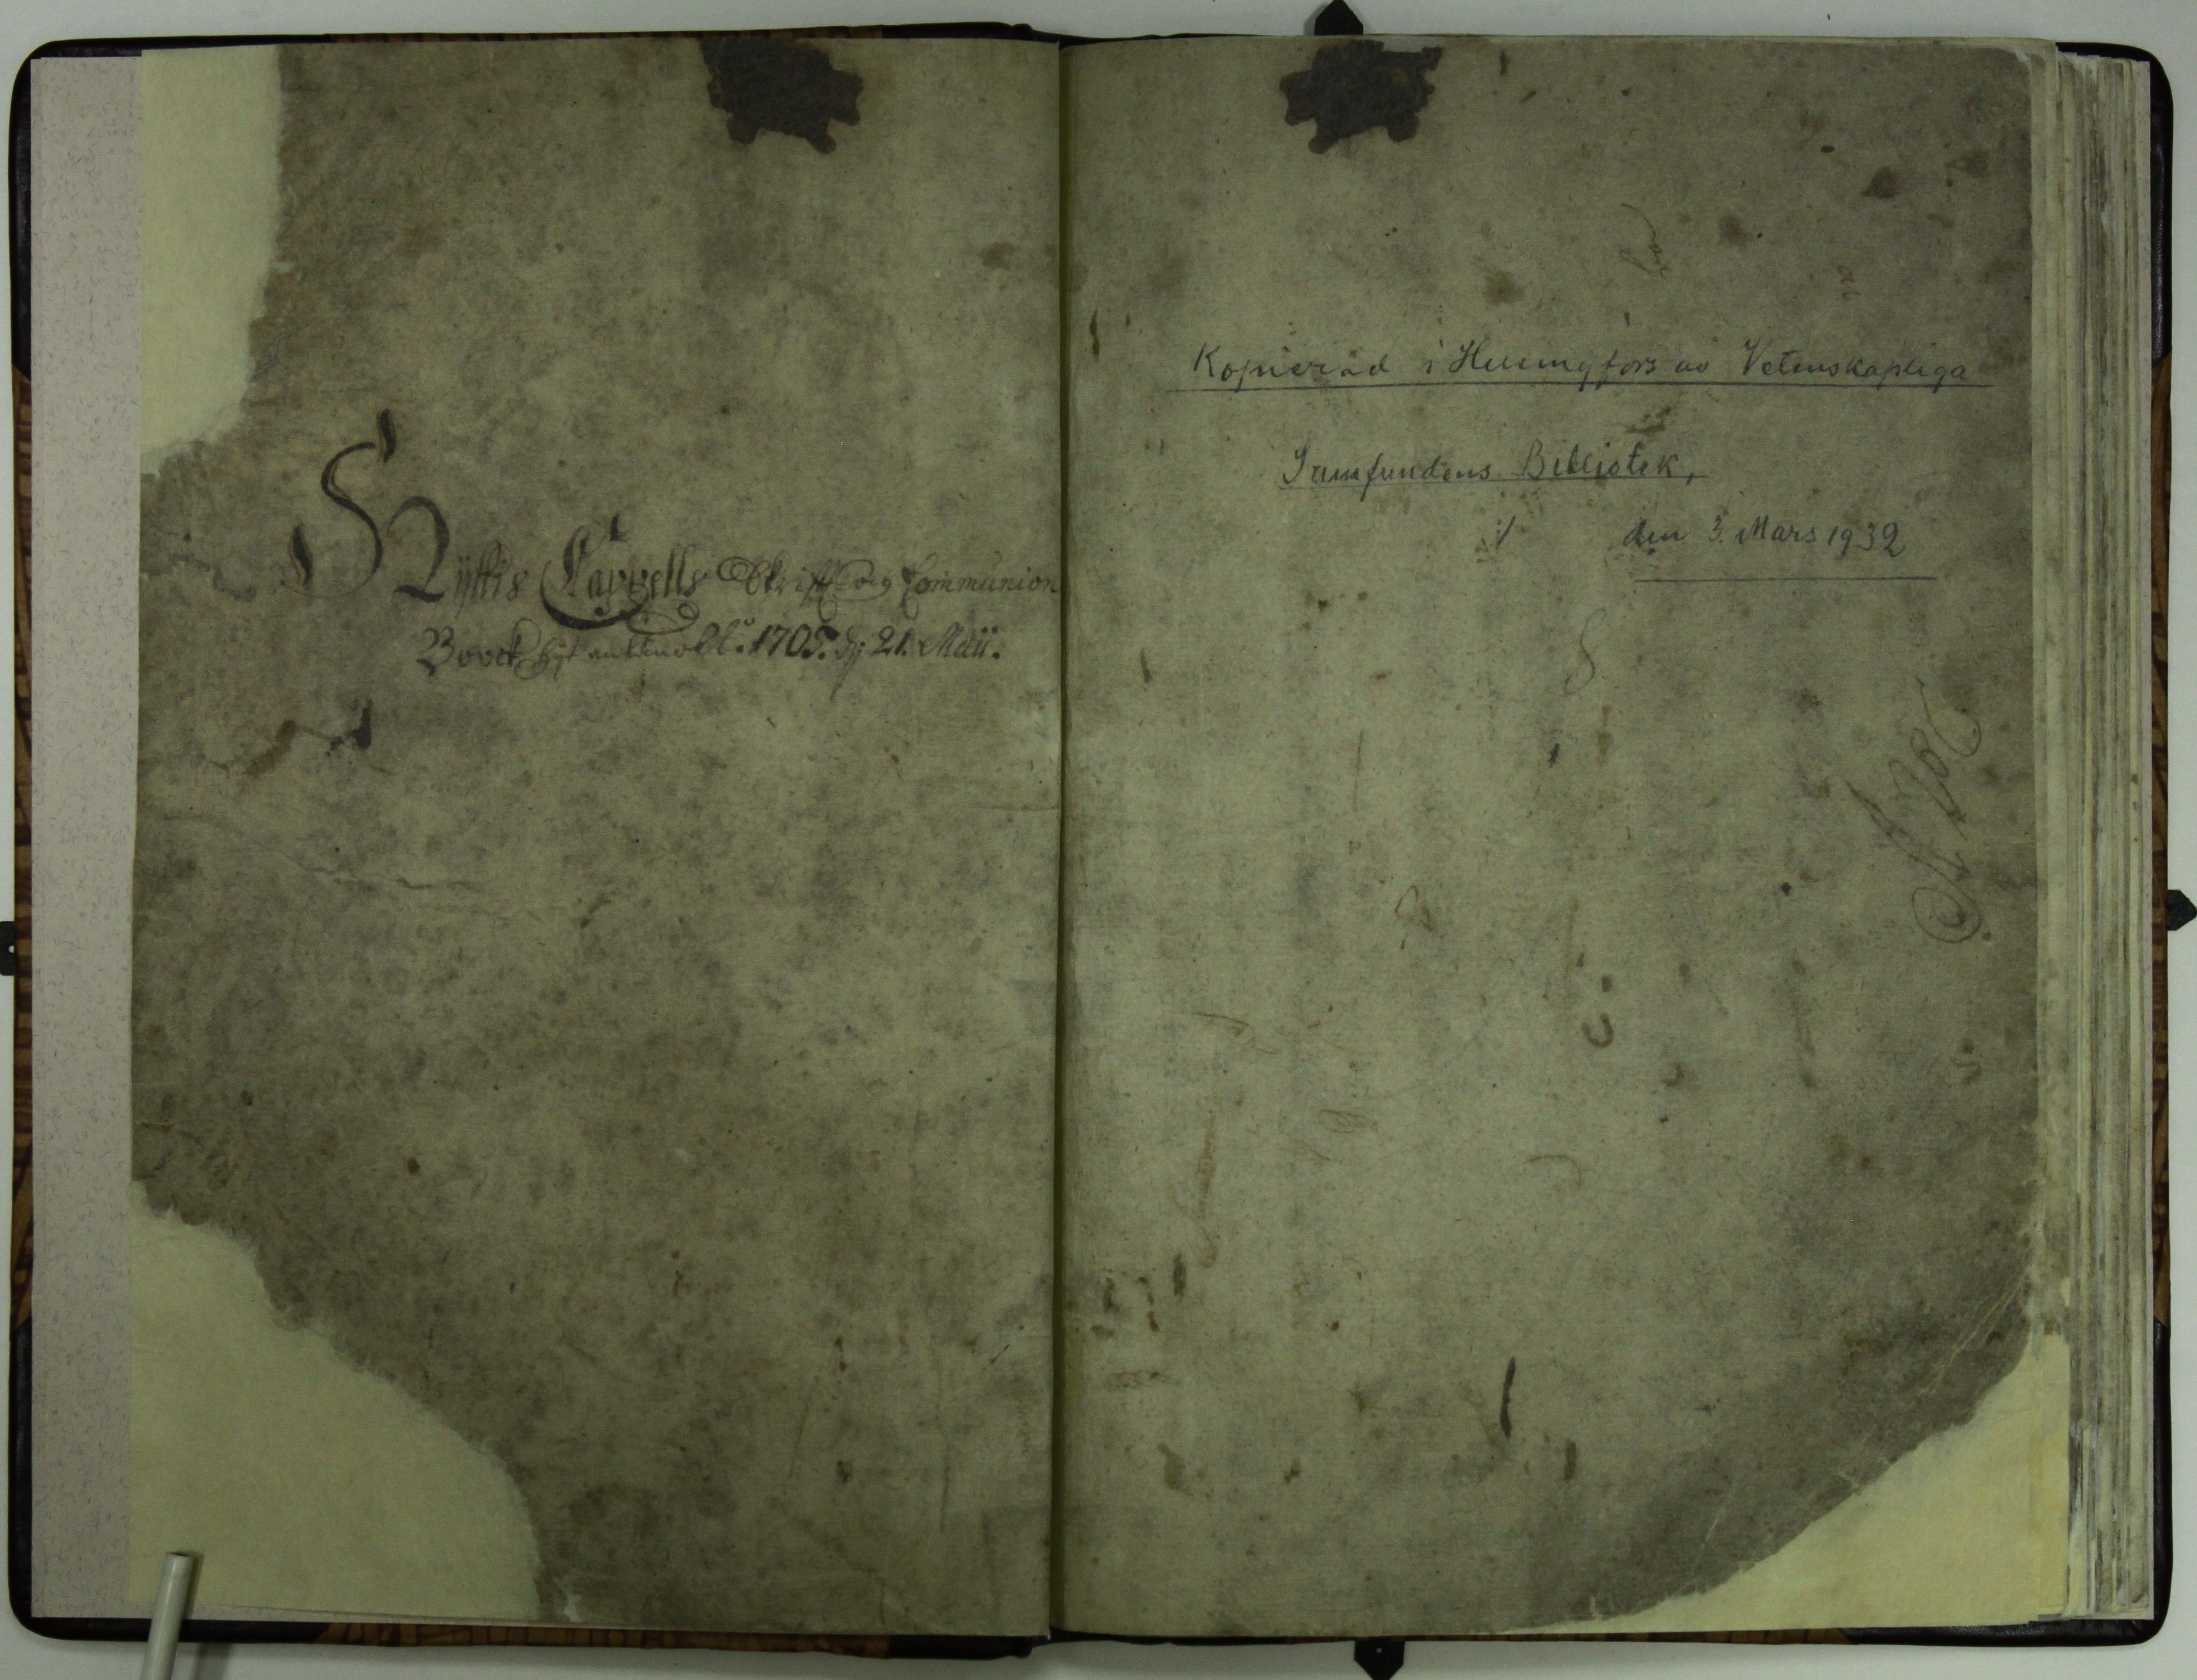 Nystis Cappells Skrifft och Communion
Boock 1705. dij 21. Maii.
Kopierad i Helsingfors av Vetenskapliga
Samfundens Bibliotek,
den 3. Mars 1932